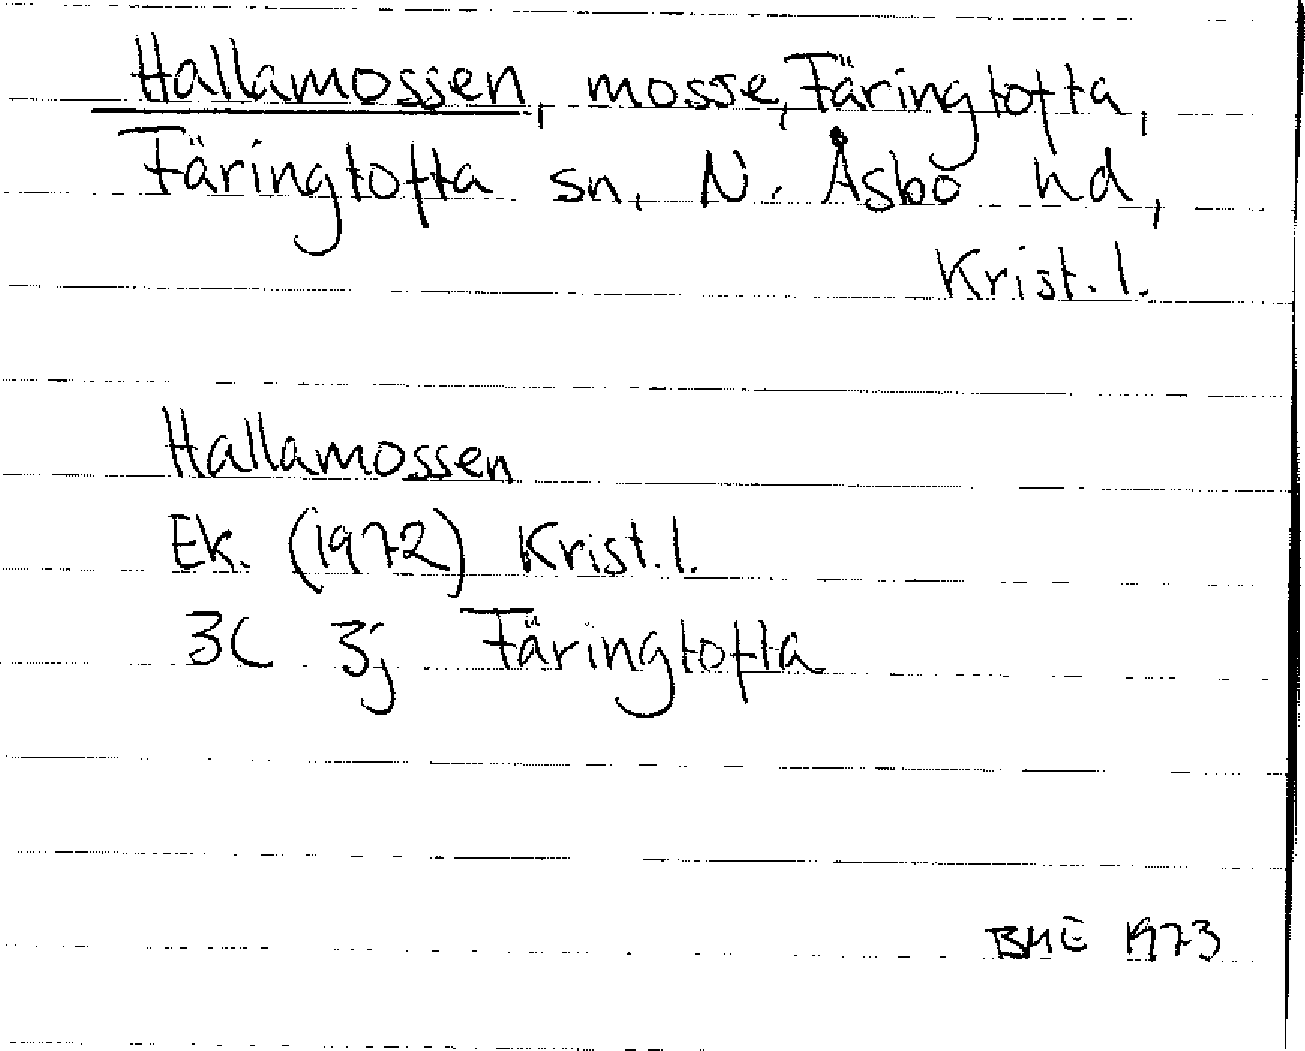 Hallamossen, mosse, Färingtofta,
Färingtofta sn, N. Åsbo hd,
Krist. l.
Hallamossen
Ek. (1972) Krist. l.
3C 3j Färingtofta
BME 1973